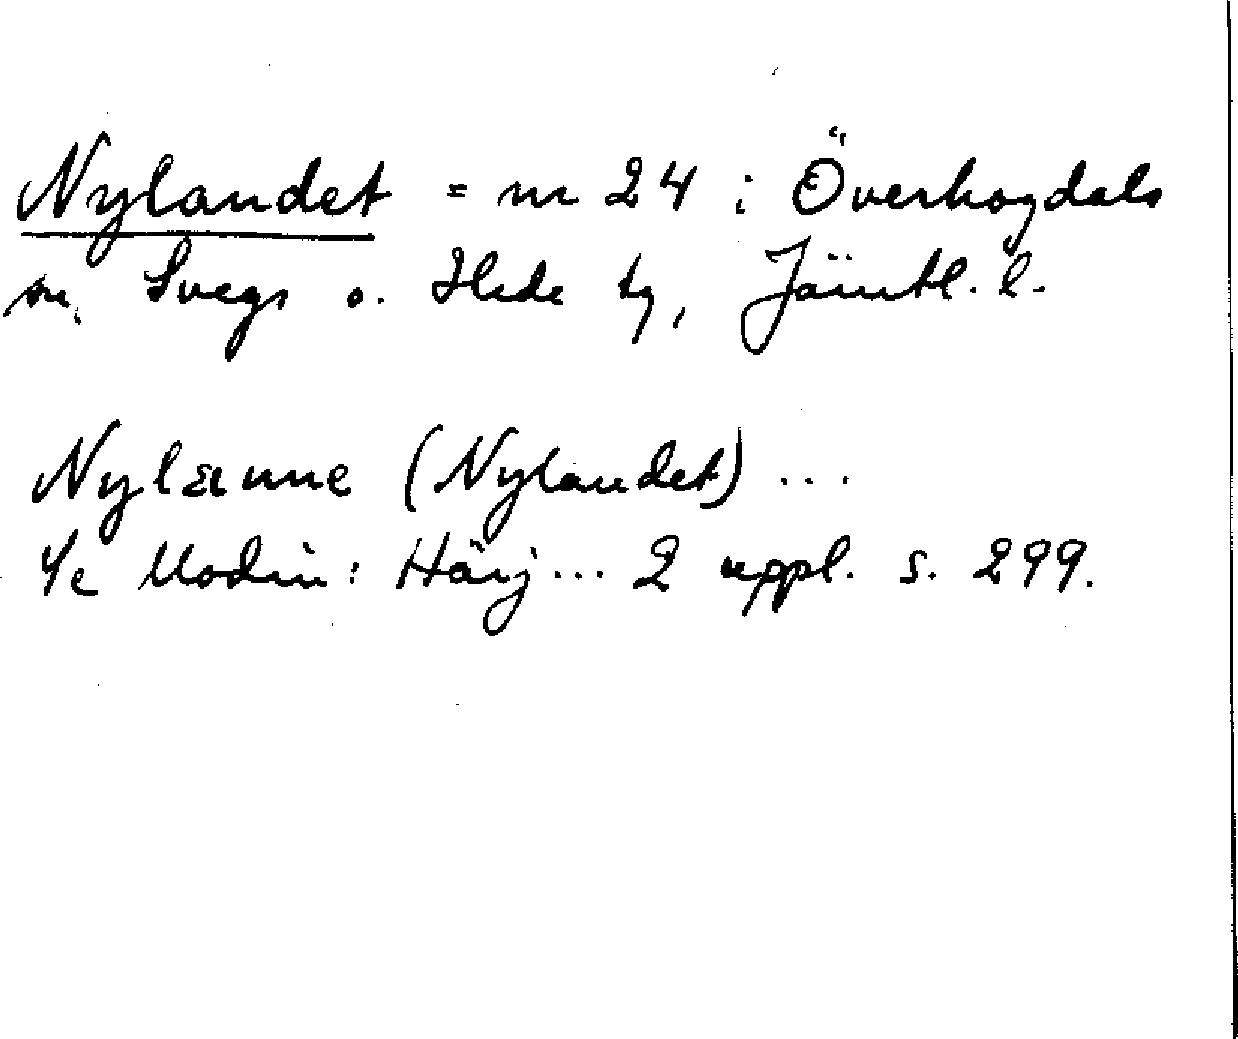 Nylandet = nr 24 i Överhogdals
sn, Svegs o. Hede tg, Jämtl. l.
Nylænne (Nylandet) ...
/e Modin: Härj... 2 uppl. s. 299.